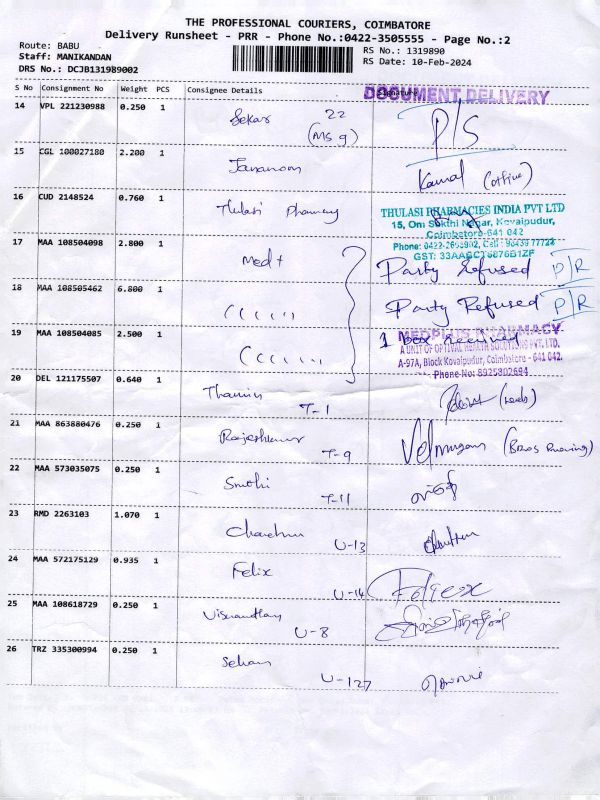 THE PROFESSIONAL COURIERS, COIMBATORE
Delivery Runsheet - PRR - Phone No.:0422-3505555 - Page No.:2
Route: BABU
Staff: MANIKANDAN
DRS No.: DCJB131989002
RS No.: 1319890
RS Date: 10-Feb-2024
S No Consignment No Weight PCS Consignee Details Signature
DOCUMENT DELIVERY
14 VPL 221230988 0.250 1 Sekar 22 P/S
(MS 9)
15 CGL 100027180 2.200 1 Kamal (office)
16 CUD 2148524 0.760 1 Thulasi Pharmacy
THULASI PHARMACIES INDIA PVT LTD
15, Om Sakthi Nagar, Kovaipudur,
Coimbatore-641 042
Phone: 0422-
GST:
17 MAA 108504098 2.800 1 Med+ Party Refused P/R
18 MAA 108505462 6.800 1 Party Refused P/R
19 MAA 108504085 2.500 1 1 box received
MEDPLUS PHARMACY
A UNIT OF OPTIVAL HEALTH SOLUTIONS PVT. LTD.
A-97A, Block Kovaipudur, Coimbatore - 641 042.
Phone No: 8925802694
20 DEL 121175507 0.640 1 T-1
21 MAA 863880476 0.250 1 Rajeshkumar T-9 Velmurugan
22 MAA 573035075 0.250 1 Smthi T-11
23 RMD 2263103 1.070 1 U-13
24 MAA 572175129 0.935 1 Felix U-14
25 MAA 108618729 0.250 1 U-8
26 TRZ 335300994 0.250 1 U-127